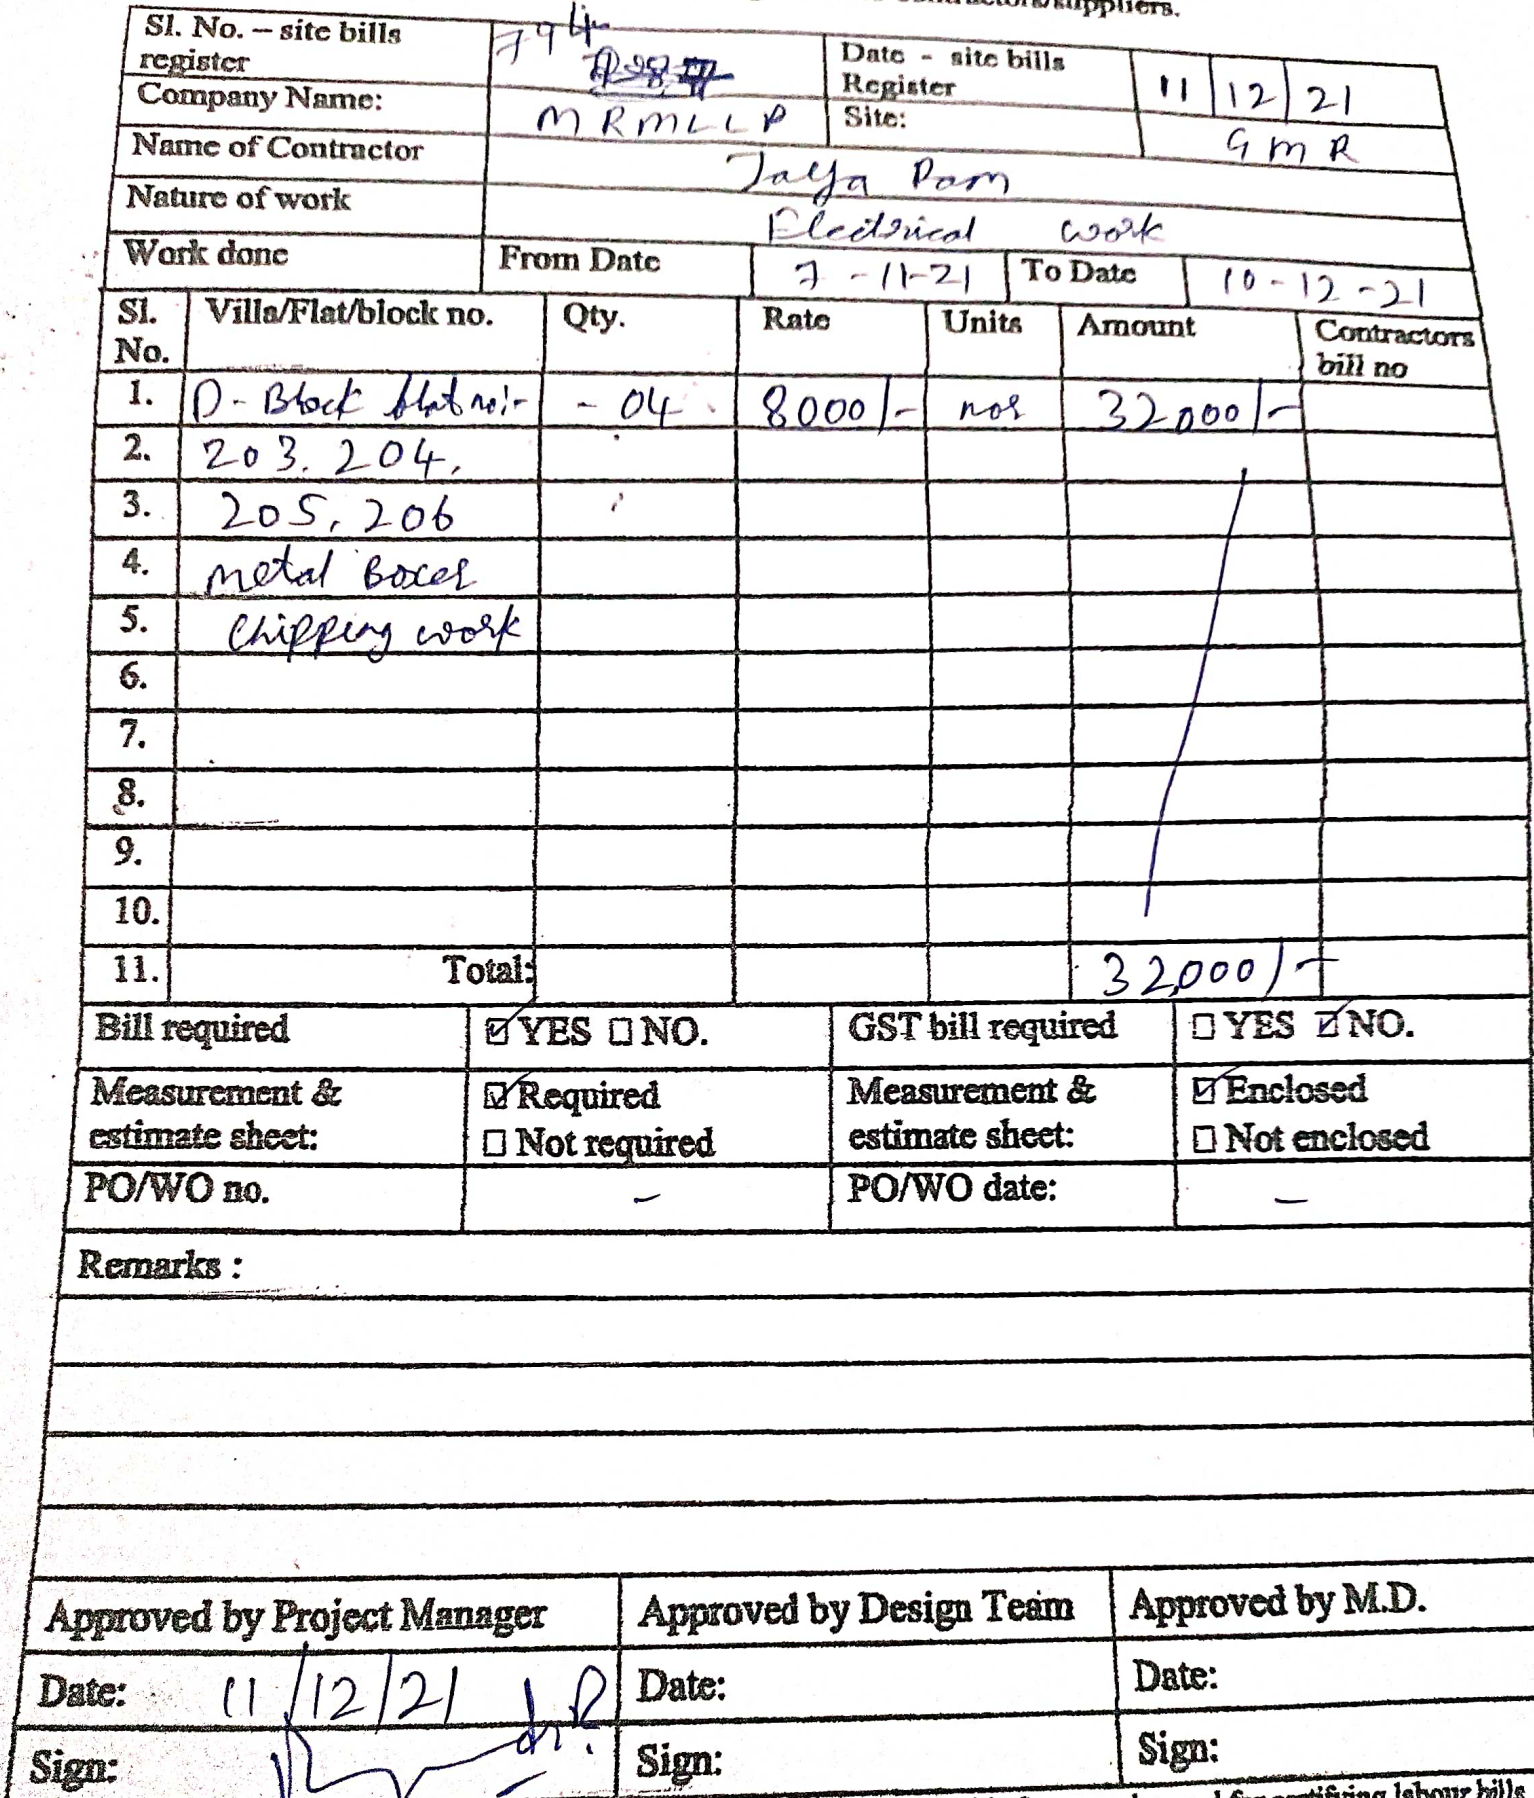 suppliers.
Sl. No. – site bills register 794 Date - site bills Register 11/12/21
Company Name: MRMLLP Site: GMR
Name of Contractor Jaya Ram
Nature of work Electrical work
Work done From Date 7-11-21 To Date 10-12-21
Sl. No. Villa/Flat/block no. Qty. Rate Units Amount Contractors bill no
1. D-Block flat no:- - 04 8000/- nos 32,000/-
2. 203. 204,
3. 205, 206
4. metal Boxes
5. Chipping work
6.
7.
8.
9.
10.
11. Total: 32,000/-
Bill required ☑ YES ☐ NO. GST bill required ☐ YES ☑ NO.
Measurement & estimate sheet: ☑ Required ☐ Not required Measurement & estimate sheet: ☑ Enclosed ☐ Not enclosed
PO/WO no. – PO/WO date: –
Remarks :
Approved by Project Manager Approved by Design Team Approved by M.D.
Date: 11/12/21 Date: Date:
Sign: Sign: Sign:
labour bills